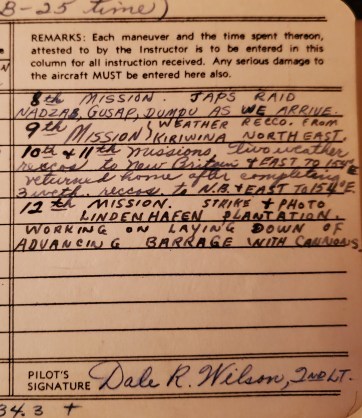 B-25 time)
REMARKS: Each maneuver and the time spent thereon,
attested to by the Instructor is to be entered in this
column for all instruction received. Any serious damage to
the aircraft MUST be entered here also.
8th MISSION. JAPS RAID
NADZAB, GUSAP, DUMPU AS WE ARRIVE.
9th MISSION} WEATHER RECCO. FROM
KIRIWINA NORTHEAST.
10th + 11th missions, two weather
reccos to New Britain + EAST TO 154°E
returned home after completing
3 weth. reccos to N.B. + EAST TO 154°E.
12th MISSION. STRIKE + PHOTO
LINDENHAFEN PLANTATION.
WORKING ON LAYING DOWN OF
ADVANCING BARRAGE WITH CANNONS.
PILOT'S
SIGNATURE Dale R. Wilson, 2ND LT.
34.3 +